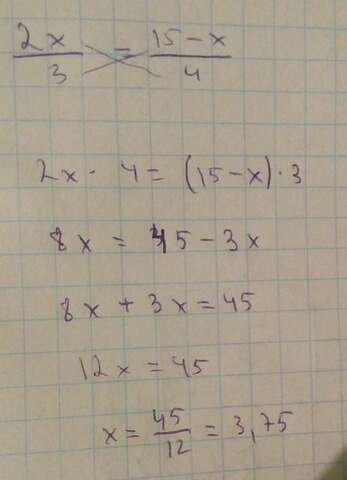 2x/3 = 15-x/4
2x · 4 = (15-x)·3
8x = 45-3x
8x + 3x = 45
12x = 45
x = 45/12 = 3,75